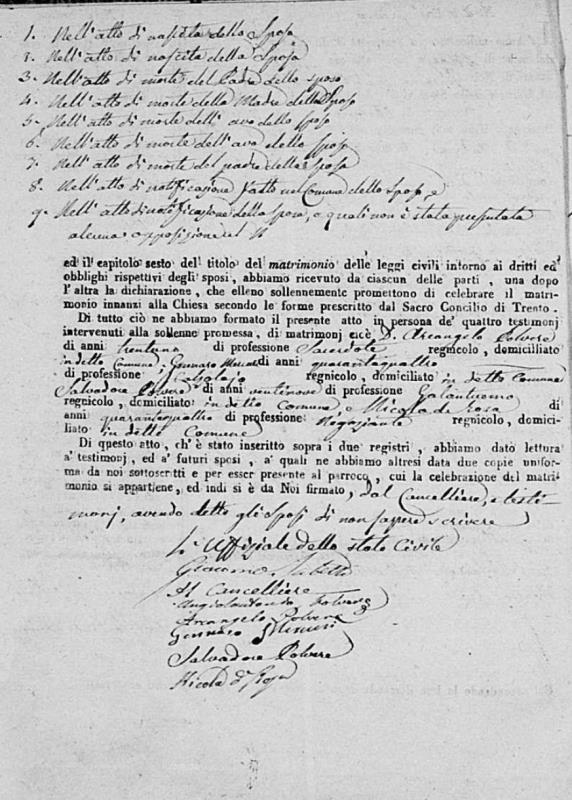 1. Nell'atto di nascita dello Sposo
2. Nell'atto di nascita della Sposa
3. Nell'atto di morte del Padre dello sposo
4. Nell'atto di morte della Madre dello Sposo
5. Nell'atto di morte dell'avo dello sposo
6. Nell'atto di morte dell'ava dello sposo
7. Nell'atto di morte del padre della sposa
8. Nell'atto di notificazione fatto nel Comune dello Sposo, e
9. Nell'atto di notificazione della sposa, a quali non è stata presentata
alcuna opposizione
ed il capitolo sesto del titolo del matrimonio delle leggi civili intorno ai dritti ed
obblighi rispettivi degli sposi, abbiamo ricevuto da ciascun delle parti, una dopo
l'altra la dichiarazione, che elleno sollennemente promettono di celebrare il matri-
monio innanzi alla Chiesa secondo le forme prescritto dal Sacro Concilio di Trento.
Di tutto ciò ne abbiamo formato il presente atto in persona de' quattro testimonj
intervenuti alla sollenne promessa, di matrimonj cioè D. Arcangelo Polvere
di anni trentuno di professione Sacerdote regnicolo, domicilliato
in detto Comune, Gennaro di anni quarantaquattro
di professione regnicolo, domiciliato in detto Comune
Salvadore Polvere di anni ventinove di professione Galantuomo
regnicolo, domiciliato in detto Comune, e Nicola de Rosa di
anni quarantaquattro di professione Negoziante regnicolo, domici-
liato in detto Comune
Di questo atto, ch'è stato inscritto sopra i due registri, abbiamo dato lettura
a' testimonj, ed a' futuri sposi, a' quali ne abbiamo altresì data due copie unifor-
ma da noi sottoscritti e per esser presente al parroco, cui la celebrazione del matri-
monio si appartiene, ed indi si è da Noi firmato, dal Cancelliere, e testi-
monj, avendo detto gli Sposi di non sapere scrivere
L'Uffiziale dello stato Civile
Giacomo
Il Cancelliere
Polvere
Arcangelo Polvere
Gennaro
Salvadore Polvere
Nicola d Rosa